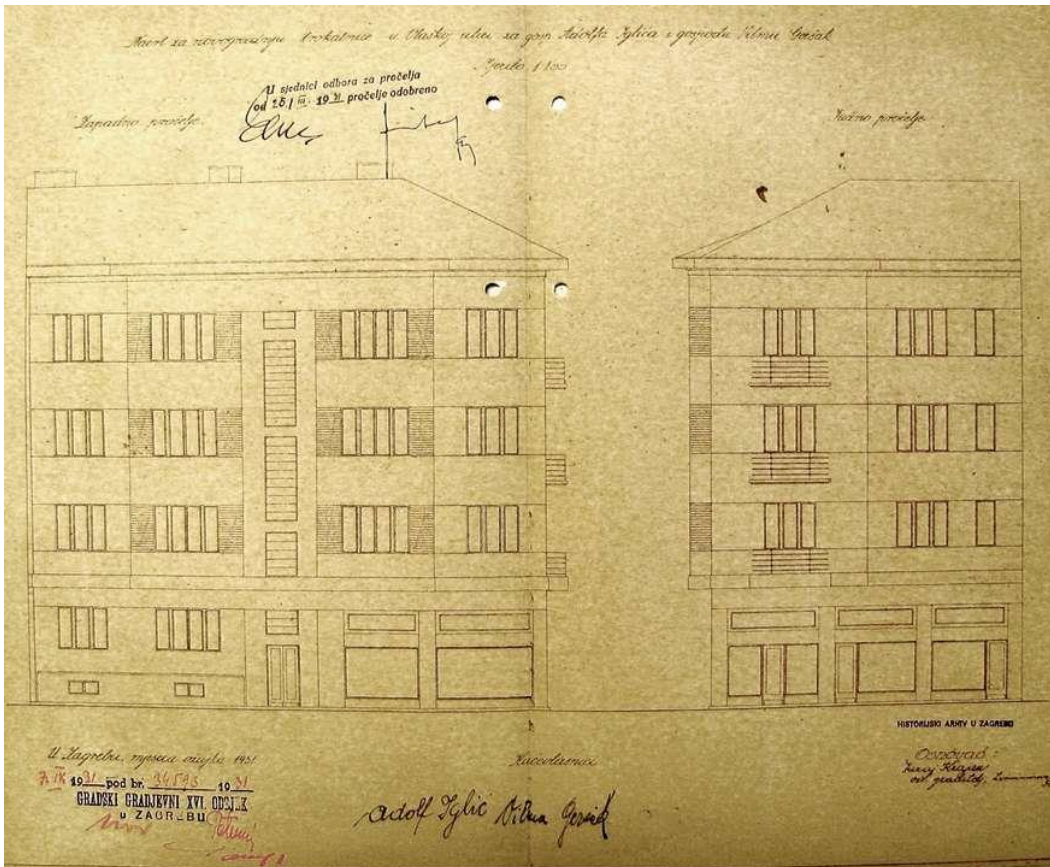 Nacrt za novogradnju trokatnice u Vlaškoj ulici za gosp. Adolfa Iglića i gospodu Vilmu Geršak
Mjerilo 1:100
U sjednici odbora za pročelja
od 1931 pročelje odobreno
Zapadno pročelje.
Južno pročelje
HISTORIJSKI ARHIV U ZAGREBU
U Zagrebu, mjeseca ožujka 1931
1931 pod br. 1931
GRADSKI GRADJEVNI XVI. ODSJEK
U ZAGREBU
Osnovao:
Juraj Krajen
ovl. graditelj,
Adolf Iglić Vilma Geršak